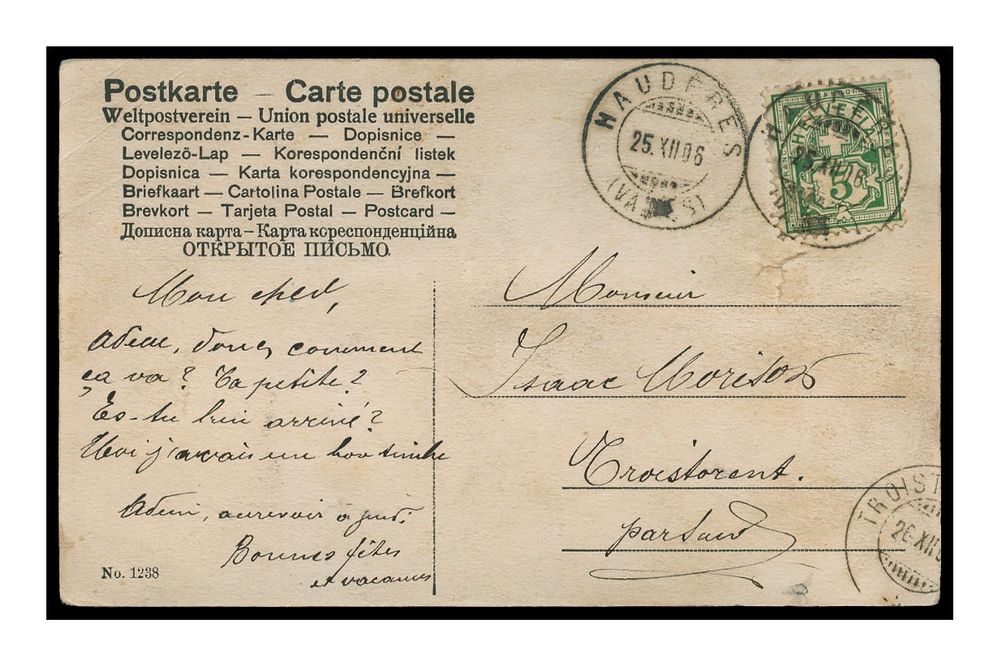 Postkarte – Carte postale
Weltpostverein – Union postale universelle
Correspondenz-Karte – Dopisnice –
Levelező-Lap – Korespondenční listek
Dopisnica – Karta korespondencyjna –
Briefkaart – Cartolina Postale – Brefkort
Brevkort – Tarjeta Postal – Postcard –
Дописна карта – Карта кореспонденцiйна
ОТКРЫТОЕ ПИСЬМО.
HAUDERES
25.XII.06
(VALAIS)
HELVETIA
5
Mon cher,
donc comment
ça va? Ta petite?
Es-tu bien arrivé?
Moi j'avais un bon timbre
aurevoir a
Bonnes fêtes
et vacances
No. 1238
Monsieur
Isaac Morisod
Troistorent.
TROIST
26.XII.0